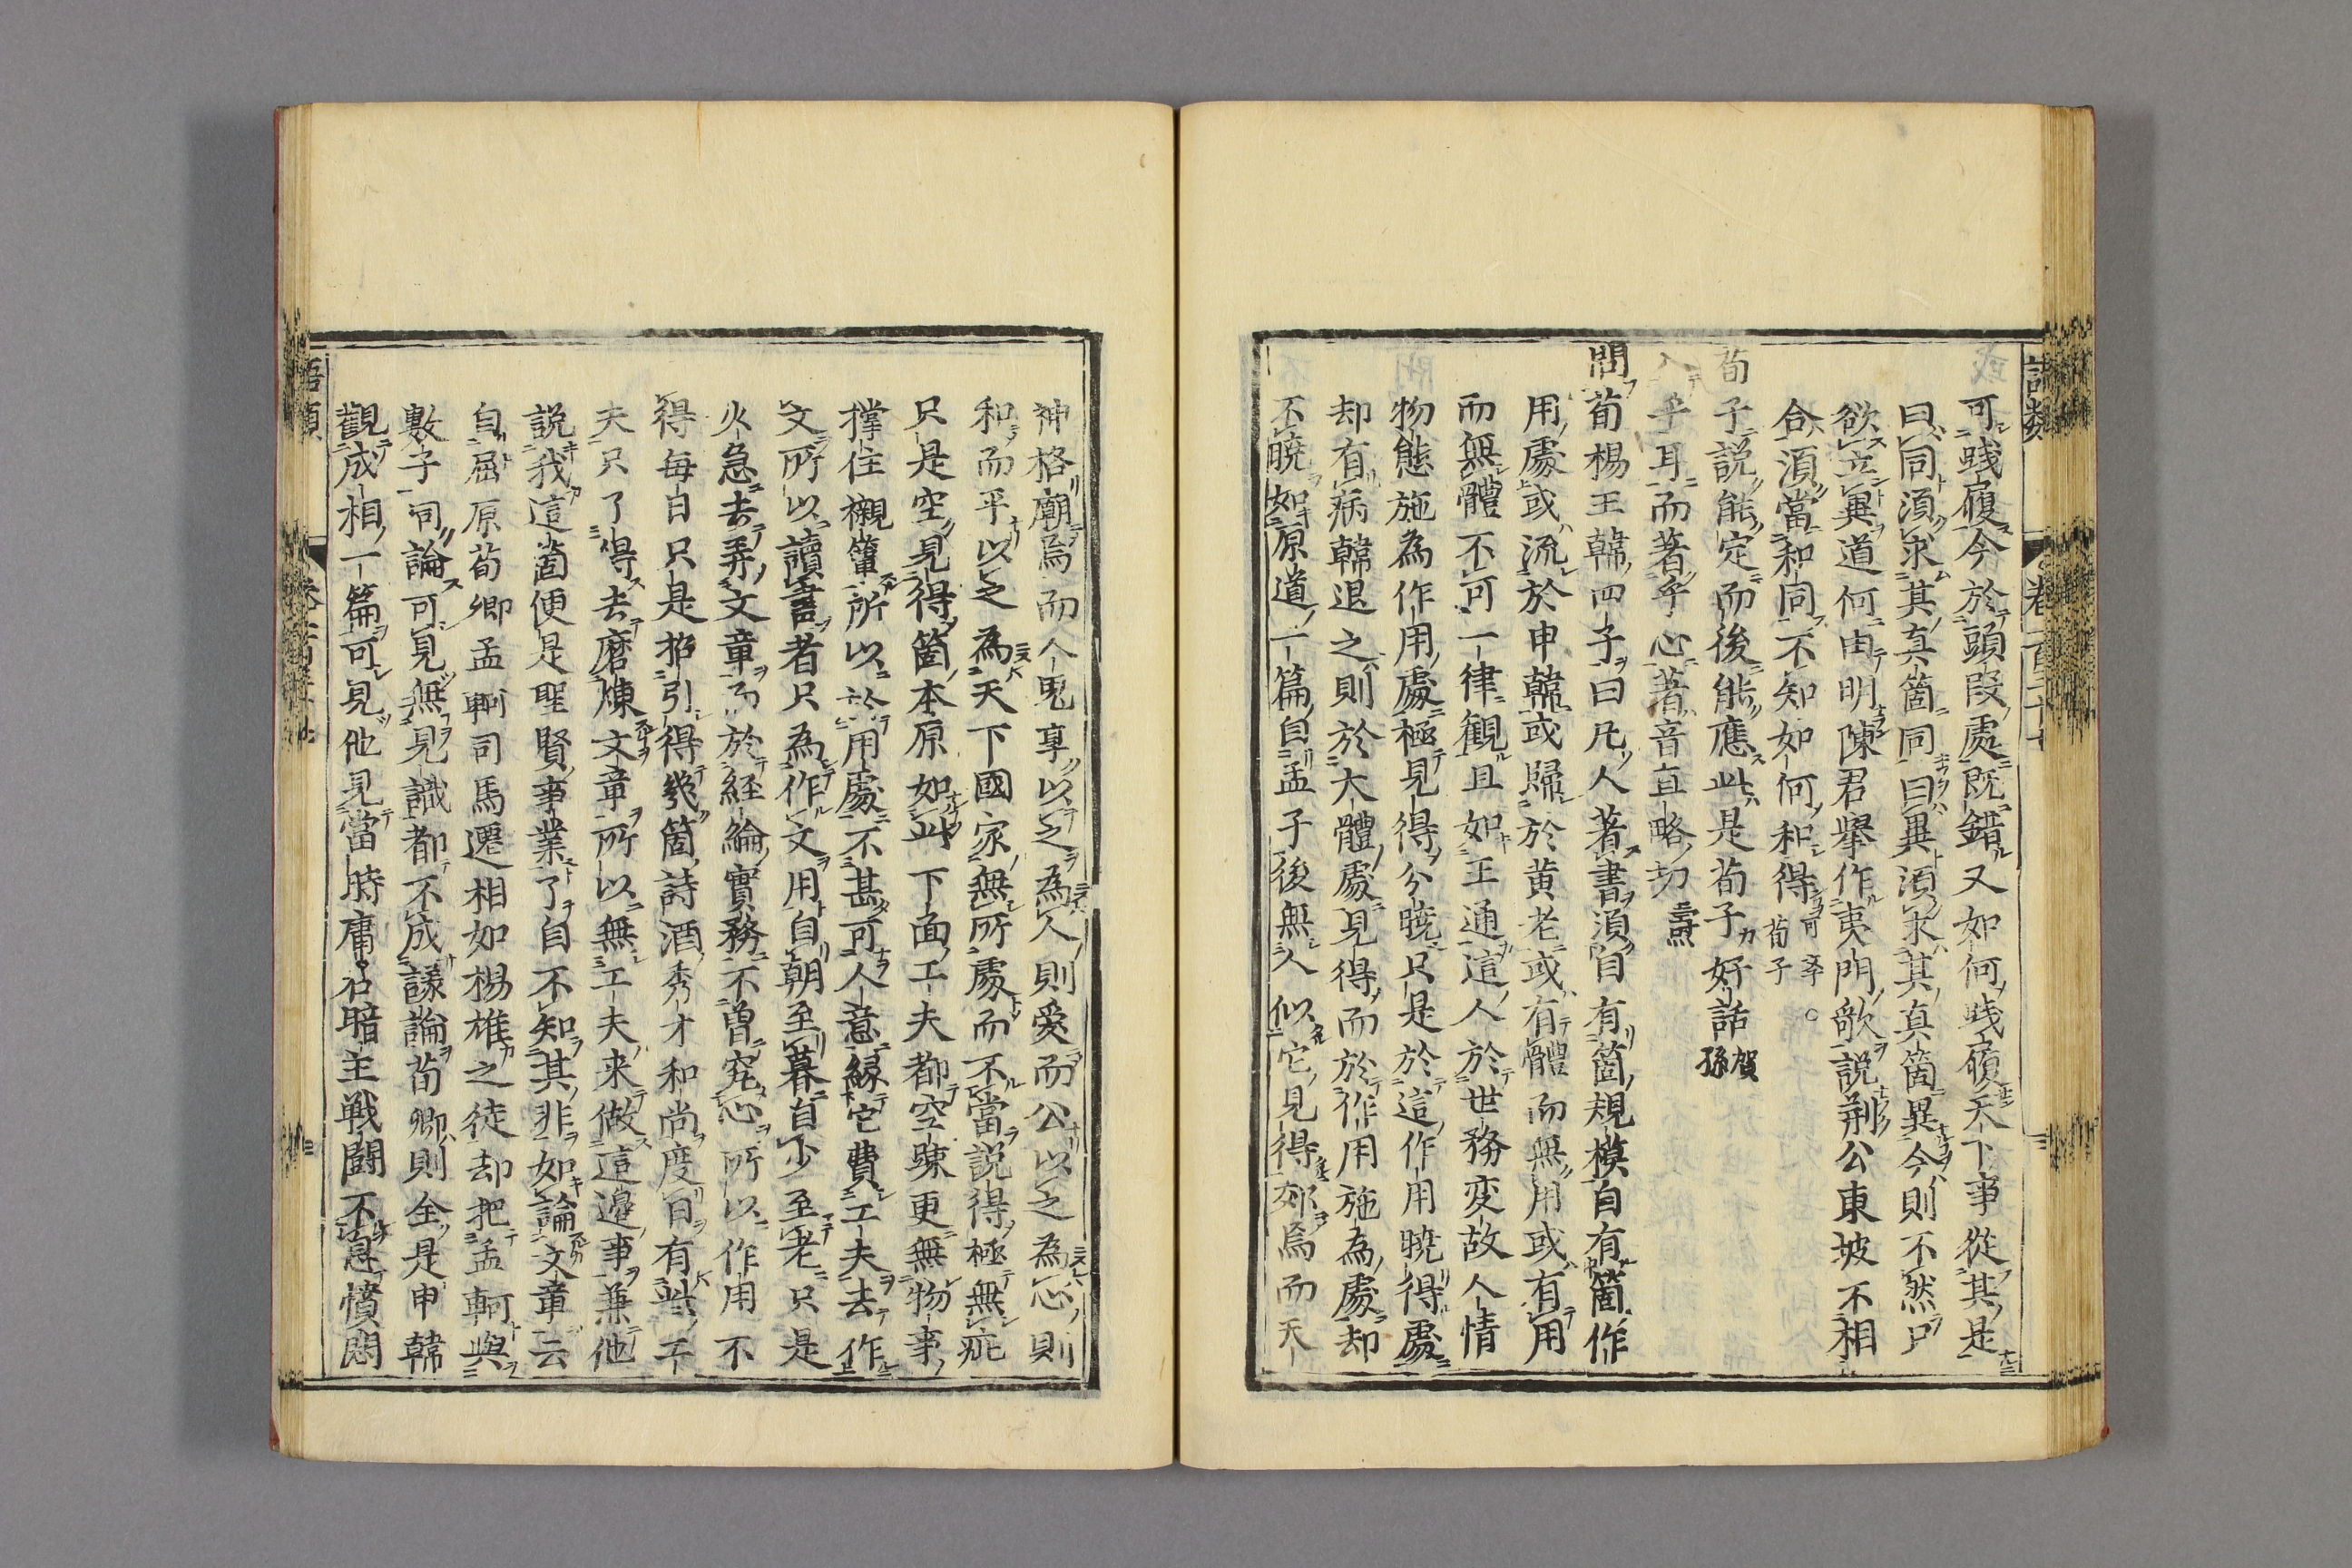 可踐履今於頭段處既錯又如何踐履天下事從其是
曰同須求其真箇同曰異須求其真箇異今則不然只
欲立異道何由明陳君舉作夷門歌說荊公東坡不相
合須當和同不知如何和得
荀子
荀子說能定而後能應此是荀子好話賀孫
入乎耳而著乎心著音直略切
問荀楊王韓四子曰凡人著書須自有箇規模自有箇作
用處或流於申韓或歸於黃老或有體而無用或有用
而無體不可一律觀且如王通這人於世務変故人情
物態施為作用處極見得分曉只是於這作用曉得處
却有病韓退之則於大體處見得而於作用施為處却
不曉如原道一篇自孟子後無人似它見得郊焉而天
神格廟焉而人鬼享以之為人則愛而公以之為心則
和而平以之為天下國家無所處而不當說得極無疵
只是空見得箇本原如此下面工夫都空疎更無物事
撐住襯簟所以於用處不甚可人意緣它費工夫去作
文所以讀書者只為作文用自朝至暮自少至老只是
火急去弄文章而於経綸實務不曾究心所以作用不
得每日只是招引得幾箇詩酒秀才和尚度日有些工
夫只了得去磨煉文章所以無工夫来做這邊事兼他
說我這箇便是聖賢事業了自不知其非如論文章云
自屈原荀卿孟軻司馬遷相如楊雄之徒却把孟軻與
數子同論可見無見識都不成議論荀卿則全是申韓
觀成相一篇可見他見當時庸君暗主戦闘不息憤悶